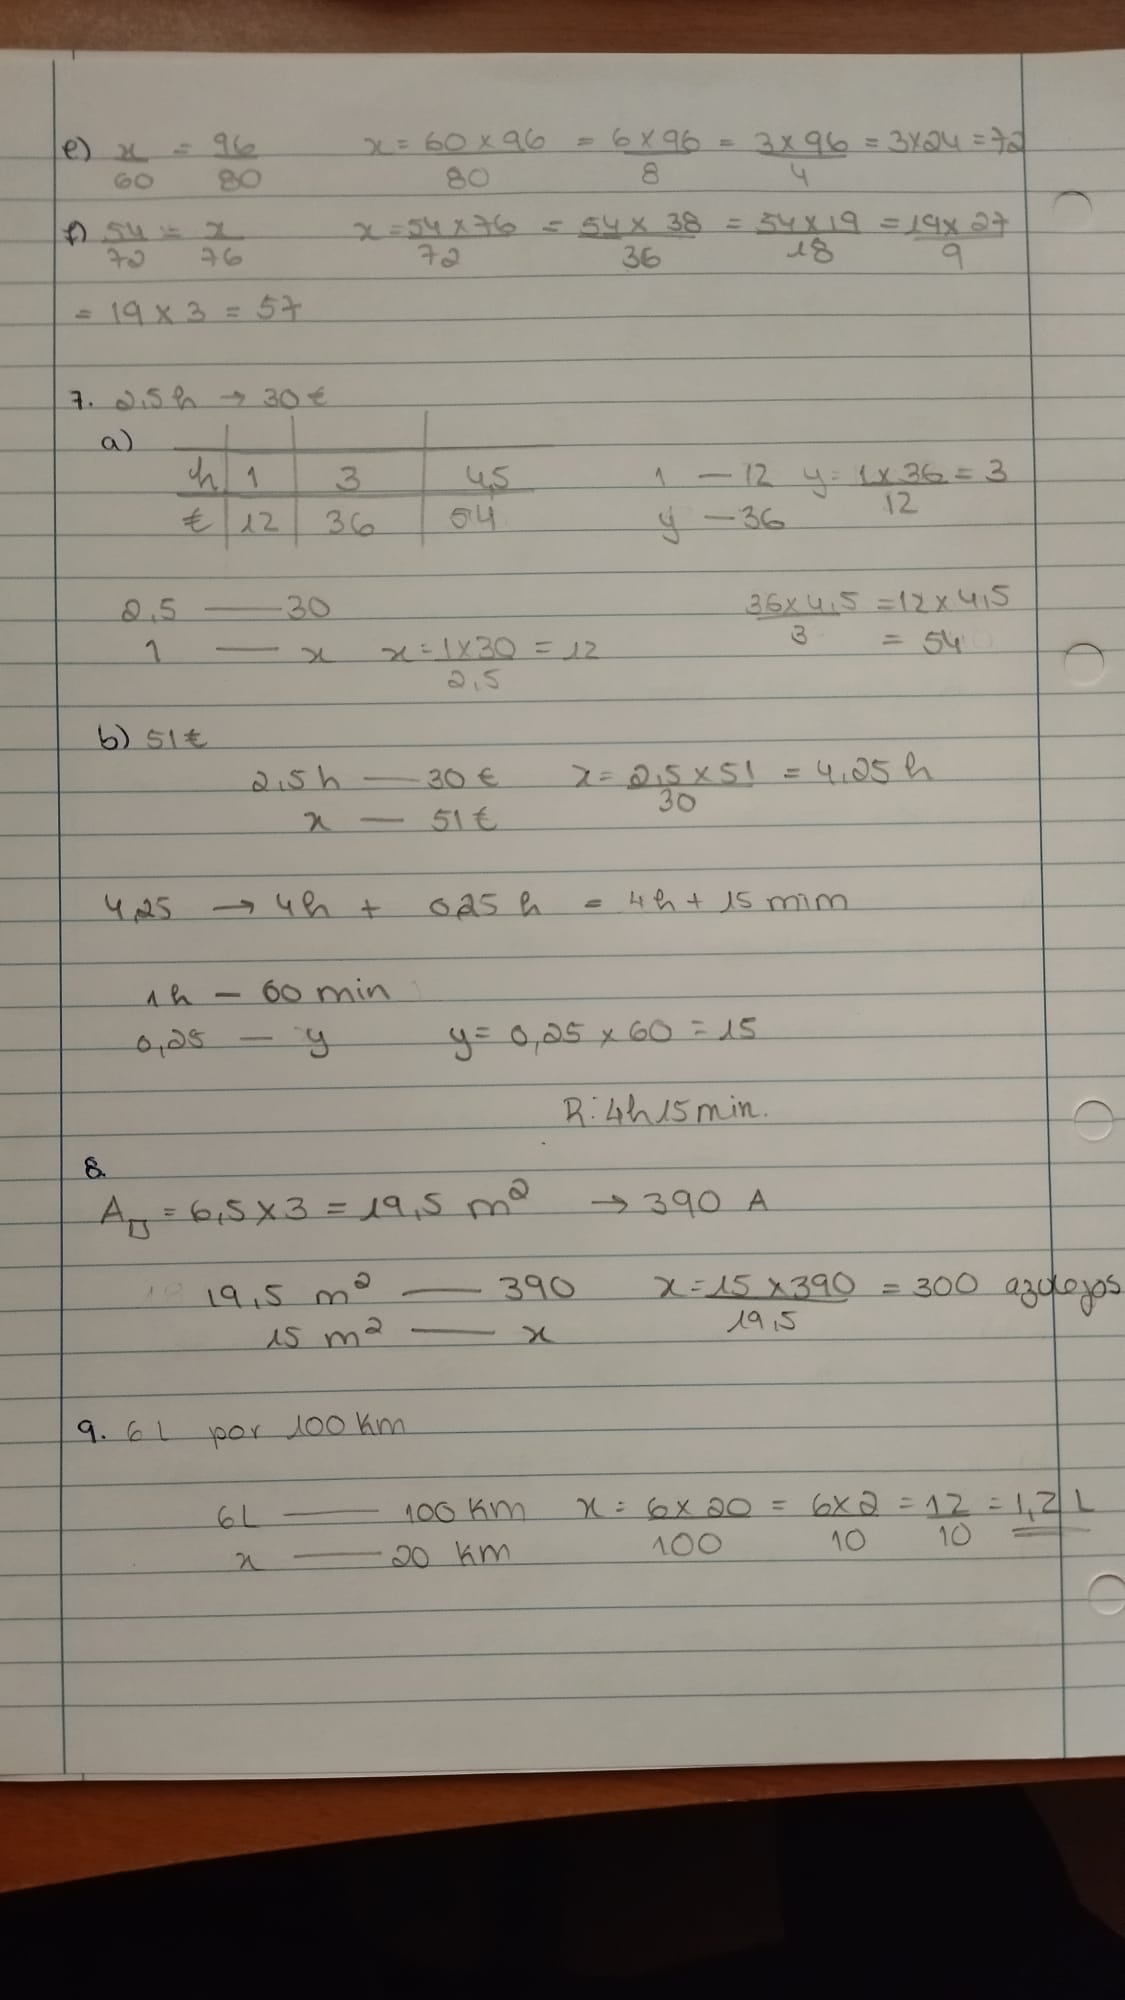 e) x/60 = 96/80 x = 60 × 96/80 = 6 × 96/8 = 3 × 96/4 = 3 × 24 = 72
f) 54/72 = x/76 x = 54 × 76/72 = 54 × 38/36 = 54 × 19/18 = 19 × 27/9
= 19 × 3 = 57
7. 2,5 h → 30 €
a)
h 1 3 4,5 1 — 12 y = 1 × 36/12 = 3
€ 12 36 54 y — 36
2,5 — 30 36 × 4,5/3 = 12 × 4,5
1 — x x = 1 × 30/2,5 = 12 = 54
b) 51 €
2,5 h — 30 € x = 2,5 × 51/30 = 4,25 h
x — 51 €
4,25 → 4h + 0,25 h = 4h + 15 mim
1h – 60 min
0,25 – y y = 0,25 × 60 = 15
R: 4h 15 min.
8.
A▭ = 6,5 × 3 = 19,5 m² → 390 A
19,5 m² — 390 x = 15 × 390/19,5 = 300 azulejos
15 m² — x
9. 6 L por 100 Km
6L — 100 Km x = 6 × 20/100 = 6 × 2/10 = 12/10 = 1,2 L
x — 20 Km